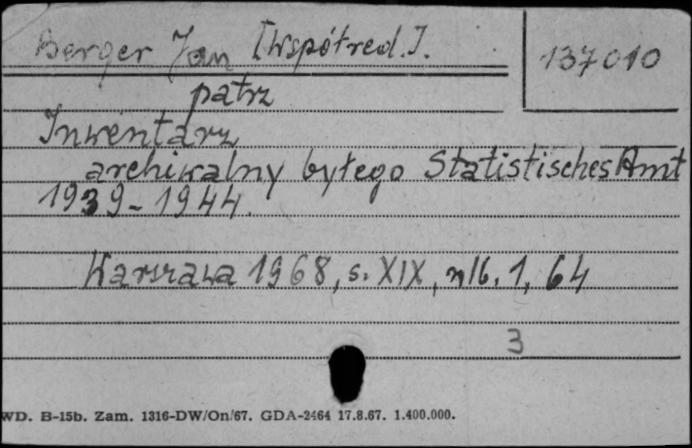 Berger Jan [Współred.]. 137010
patrz
Inwentarz
archiwalny byłego Statistisches Amt
1939-1944.
Warszawa 1968, s. XIX, nlb. 1, 64
3
WD. B-15b. Zam. 1316-DW/On/67. GDA-2464 17.8.67. 1.400.000.